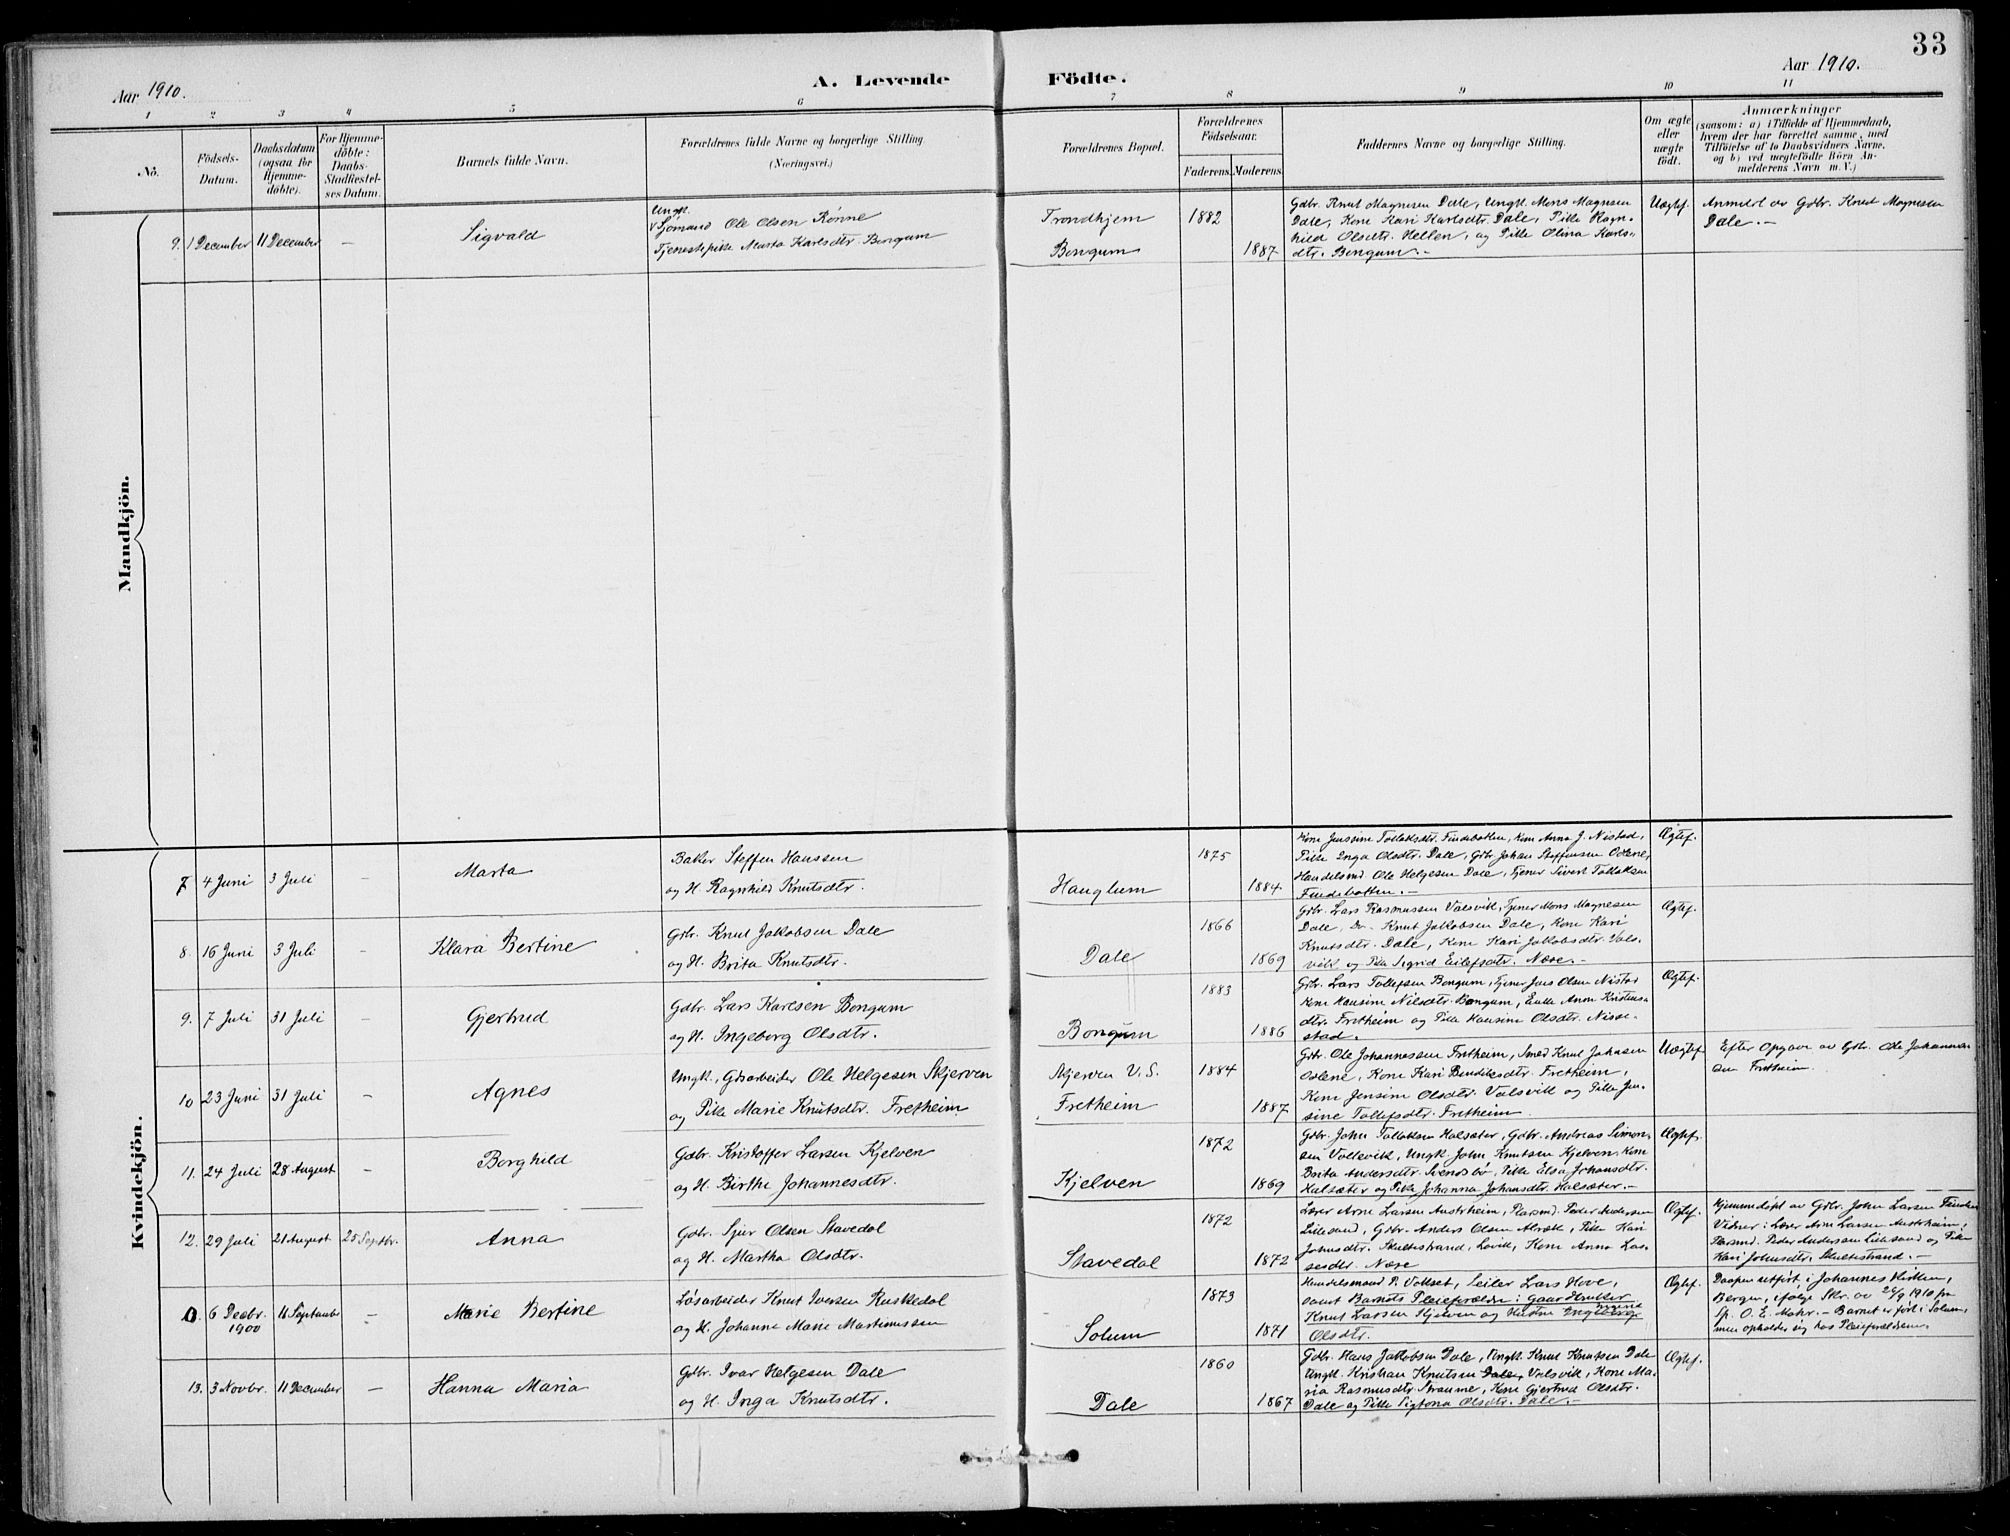 33
Aar 1910.
A. Levende Födte.
Aar 1910.
1 2 3 4 5 6 7 8 9 10 11
No.
Födsels-Datum.
Daabsdatum (ogsaa for Hjemme-döbte).
For Hjemme-döbte: Daabs-Stadfæstel-ses Datum.
Barnets fulde Navn.
Forældrenes fulde Navne og borgerlige Stilling
(Næringsvei.)
Forældrenes Bopæl.
Forældrenes Födselsaar.
Faderens. Moderens.
Faddernes Navne og borgerlige Stilling.
Om ægte eller uægte födt.
Anmærkninger
(saasom: a) i Tilfælde af Hjemmedaab,
hvem der har forrettet samme, med
Tilföielse af to Daabsvidners Navne,
og b) ved uægtefödte Börn An-
melderens Navn m. V.)
Mandkjön.
9. 1 December 11 December – Sigvald
Ungk. Sjømand Ole Olsen Rønne
Tjenestepike Marta Karlsdtr. Bongum
Trondhjem
Bongum
1882
1887
Gdbr. Knut Magnesen Dale, Ungk. Mons Magnesen
Dale, Kone Kari Karlsdtr. Dale, Pike Ragn-
hild Olsdtr. Hellen, og Pike Olina Karls-
dtr. Bongum.–
Uægtef.
Anmeldt av Gdbr. Knut Magnesen
Dale.–
Kvindekjön.
7 4 Juni 3 Juli – Marta
Baker Steffen Hanssen
og H. Ragnhild Knutsdtr.
Hauglum
1875
1884
Kone Jenssine Tollaksdtr. Findebotten, Kone Anna J. Nistad,
Pike Inga Olsdtr. Dale, Gdbr. Johan Steffensen Odene,
Handelsmd Ole Helgesen Dale, Tjener Sivert Tollaksen
Findebotten.–
Ægtef.
8. 16 Juni 3 Juli – Klara Bertine
Gdbr. Knut Jakobsen Dale
og H. Brita Knutsdtr.
Dale
1866
1869
Gdbr. Lars Rasmussen Valsvik, Tjener Mons Magnesen
Dale, Do. Knut Jakobsen Dale, Kone Kari
Knutsdtr. Dale, Kone Kari Jakobsdtr. Vals-
vik og Pike Sigrid Eilefsdtr. Næse.–
Ægtef.
9. 7 Juli 31 Juli – Gjertrud
Gdbr. Lars Karlsen Bongum
og H. Ingeborg Olsdtr.
Bongum
1883
1886
Gdbr. Lars Tollefsen Bongum, Tjener Jens Olsen Nistad
Kone Hansine Nilsdtr. Bongum, Enke Anna Kristens-
dtr. Fretheim og Pike Hansine Olsdtr. Nisse-
stad.
Ægtef.
10 23 Juni 31 Juli – Agnes
Ungk., Gdsarbeider Ole Helgesen Skjerven
og Pike Marie Knutsdtr. Fretheim
Skjerven V. S.
Fretheim
1884
1887
Gdbr. Ole Johannessen Fretheim, Smed Knut Johnsen
Odene, Kone Kari Bendiksdtr. Fretheim,
Kone Jensine Olsdtr. Valsvik og Pike Jen-
sine Tollefsdtr. Fretheim
Uægtef.
Efter Opgave av Gdbr. Ole Johannes-
sen Fretheim.
11. 24 Juli 28 August – Borghild
Gdbr. Kristoffer Larsen Kjelven
og H. Birthe Johannesdtr.
Kjelven
1872
1869
Gdbr. John Tollaksen Halsæter, Gdbr. Andreas Simon-
sen Vallevik, Ungk. John Knutsen Kjelven, Kone
Brita Andersdtr. Svendsbø, Pike Elsa Johansdtr.
Halsæter og Pike Johanna Johansdtr. Halsæter.–
Ægtef.
12. 29 Juli 21 August 25 Septbr. Anna
Gdbr. Sjur Olsen Stavedal
og H. Martha Olsdtr.
Stavedal
1872
1872
Lærer Arne Larsen Austrheim, Plasmd. Peder Andersen
Lillesand, Gdbr. Anders Olsen Alræk, Pike Kari
Johnsdtr. Skultestrand, Lavik, Kone Anna Las-
sesdtr. Næse
Ægtef.
Hjemmedøpt av Gdbr. John Larsen
Vidner: Lærer Arne Larsen Austrheim,
Plasmd. Peder Andersen Lillesand og Pike
Kari Johnsdtr. Skultestrand.–
0. 6 Decbr. 1900 16 September – Marie Bertine
Løsarbeider Knut Iversen Ruskedal
og H. Johanne Marie Martinussen
Solum
1873
1871
Handelsmand P. Vollset, Seiler Lars Hove,
samt Barnets Pleieforældre: Gaardbruker
Knut Larsen Skjelven og Hustru
Olsdtr.
Ægtef.
Daapen utført i Johannes Kirken,
Bergen, ifølge Skr. av 24/9 1910 fra
Sp. O. E. Mohr.– Barnet er født i Solum,
men opholder sig hos Pleieforældrene.
13. 3 Novbr. 11 December – Hanna Maria
Gdbr. Ivar Helgesen Dale
og H. Inga Knutsdtr.
Dale
1860
1867
Gdbr. Hans Jakobsen Dale, Ungk. Knut Knutsen Dale
Ungk. Kristian Knutsen Valsvik, Kone Ma-
ria Rasmusdtr. Straume, Kone Gjertrud Olsdtr.
Dale og Pike Sigtona Olsdtr. Dale.–
Ægtef.